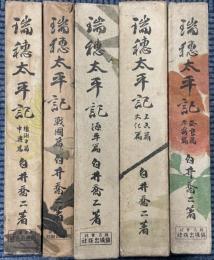 瑞穂太平記
中興篇
白井喬二著
瑞穂太平記
戰國篇
白井喬二著
瑞穂太平記
海軍篇
白井喬二著
瑞穂太平記
上代篇
大化篇
白井喬二著
瑞穂太平記
白井喬二著